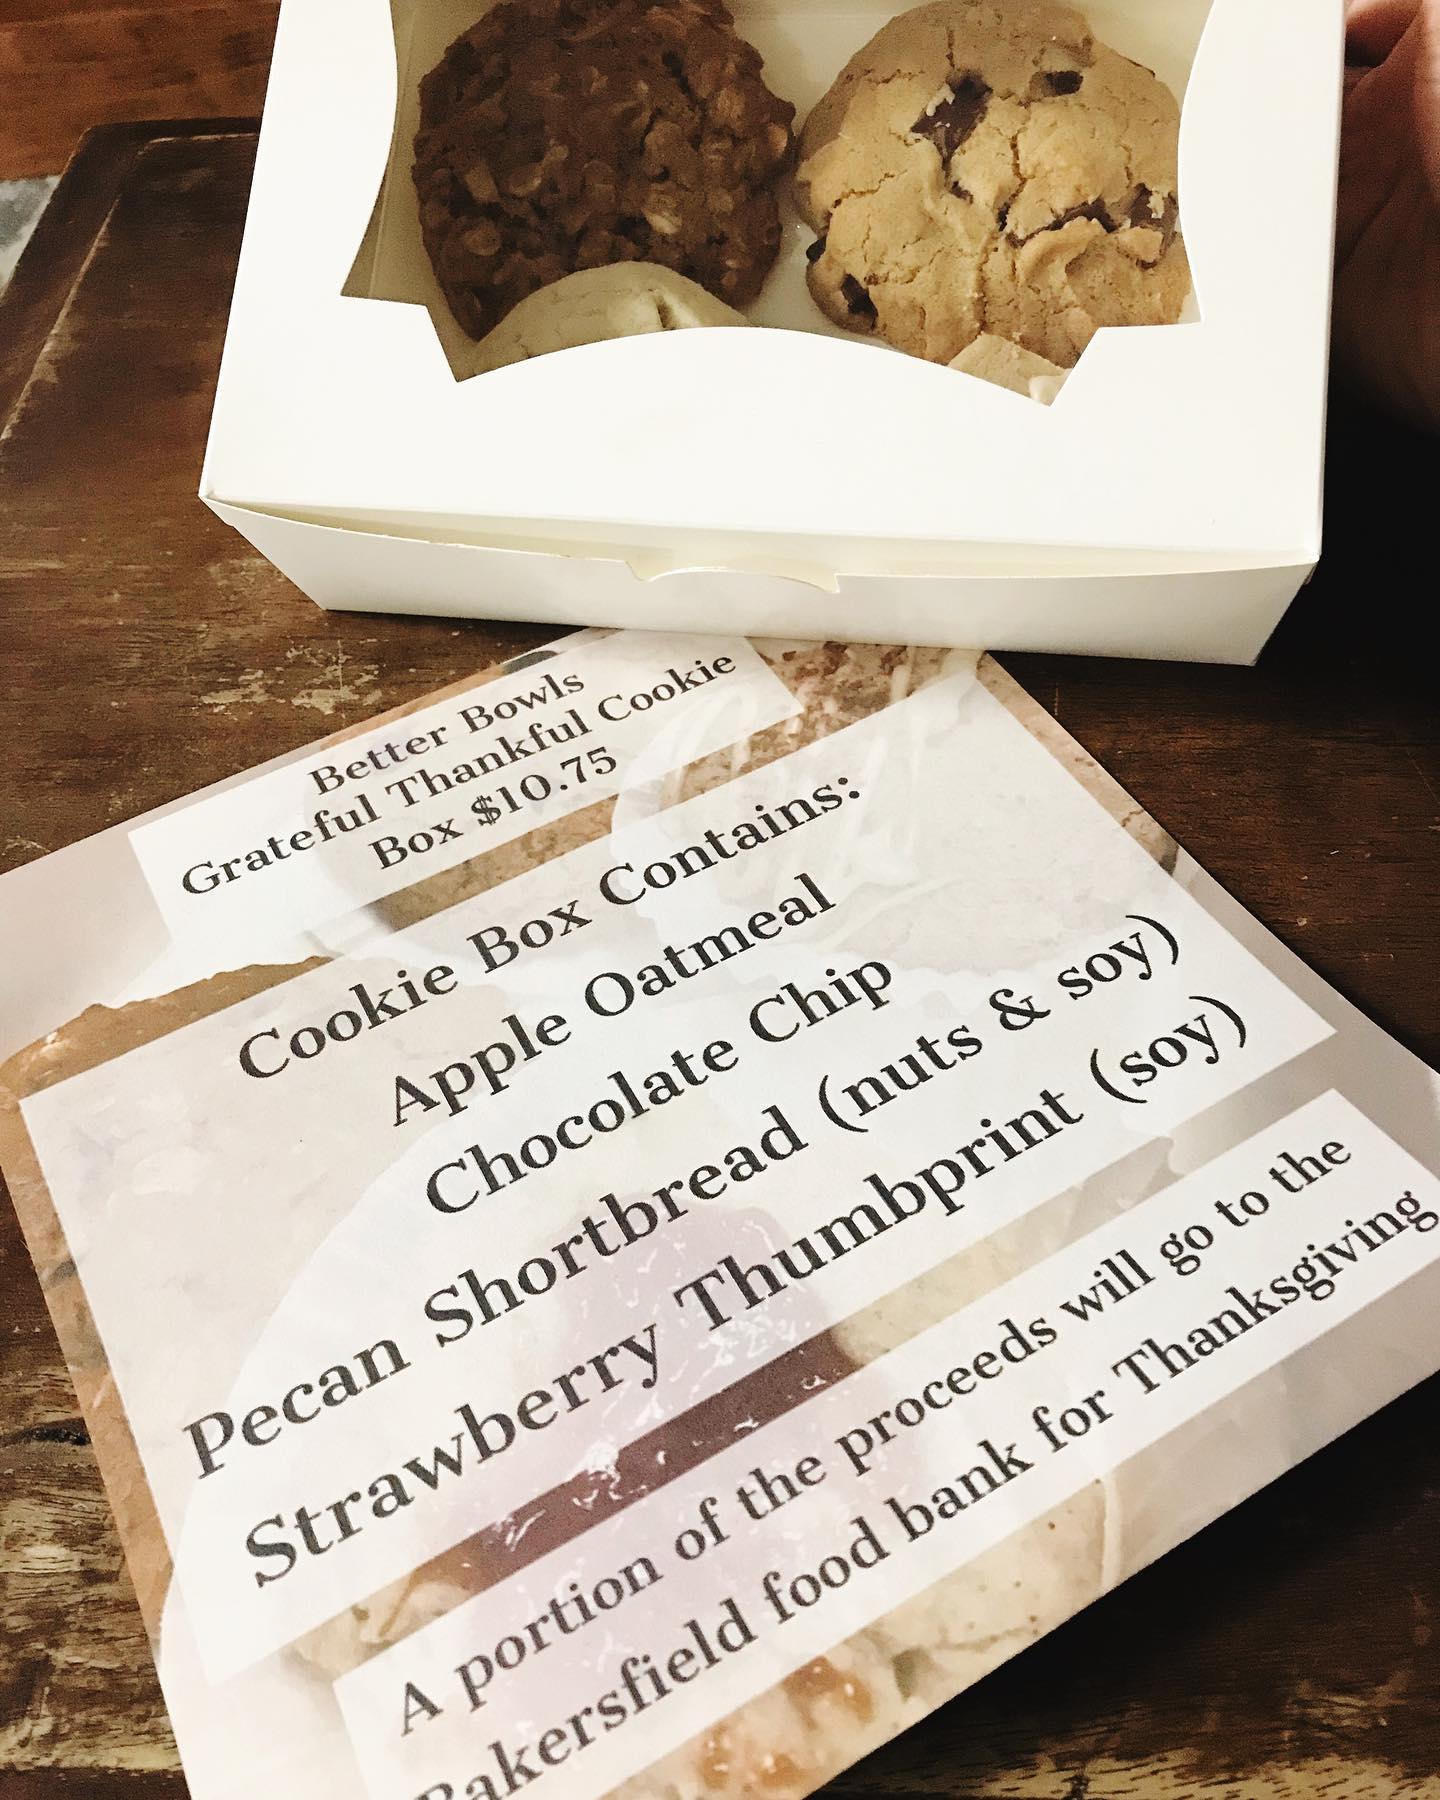 Better Bowls
Grateful Thankful Cookie
Box $10.75
Cookie Box Contains:
Apple Oatmeal
Chocolate Chip
Pecan Shortbread (nuts & soy)
Strawberry Thumbprint (soy)
A portion of the proceeds will go to the
Bakersfield food bank for Thanksgiving